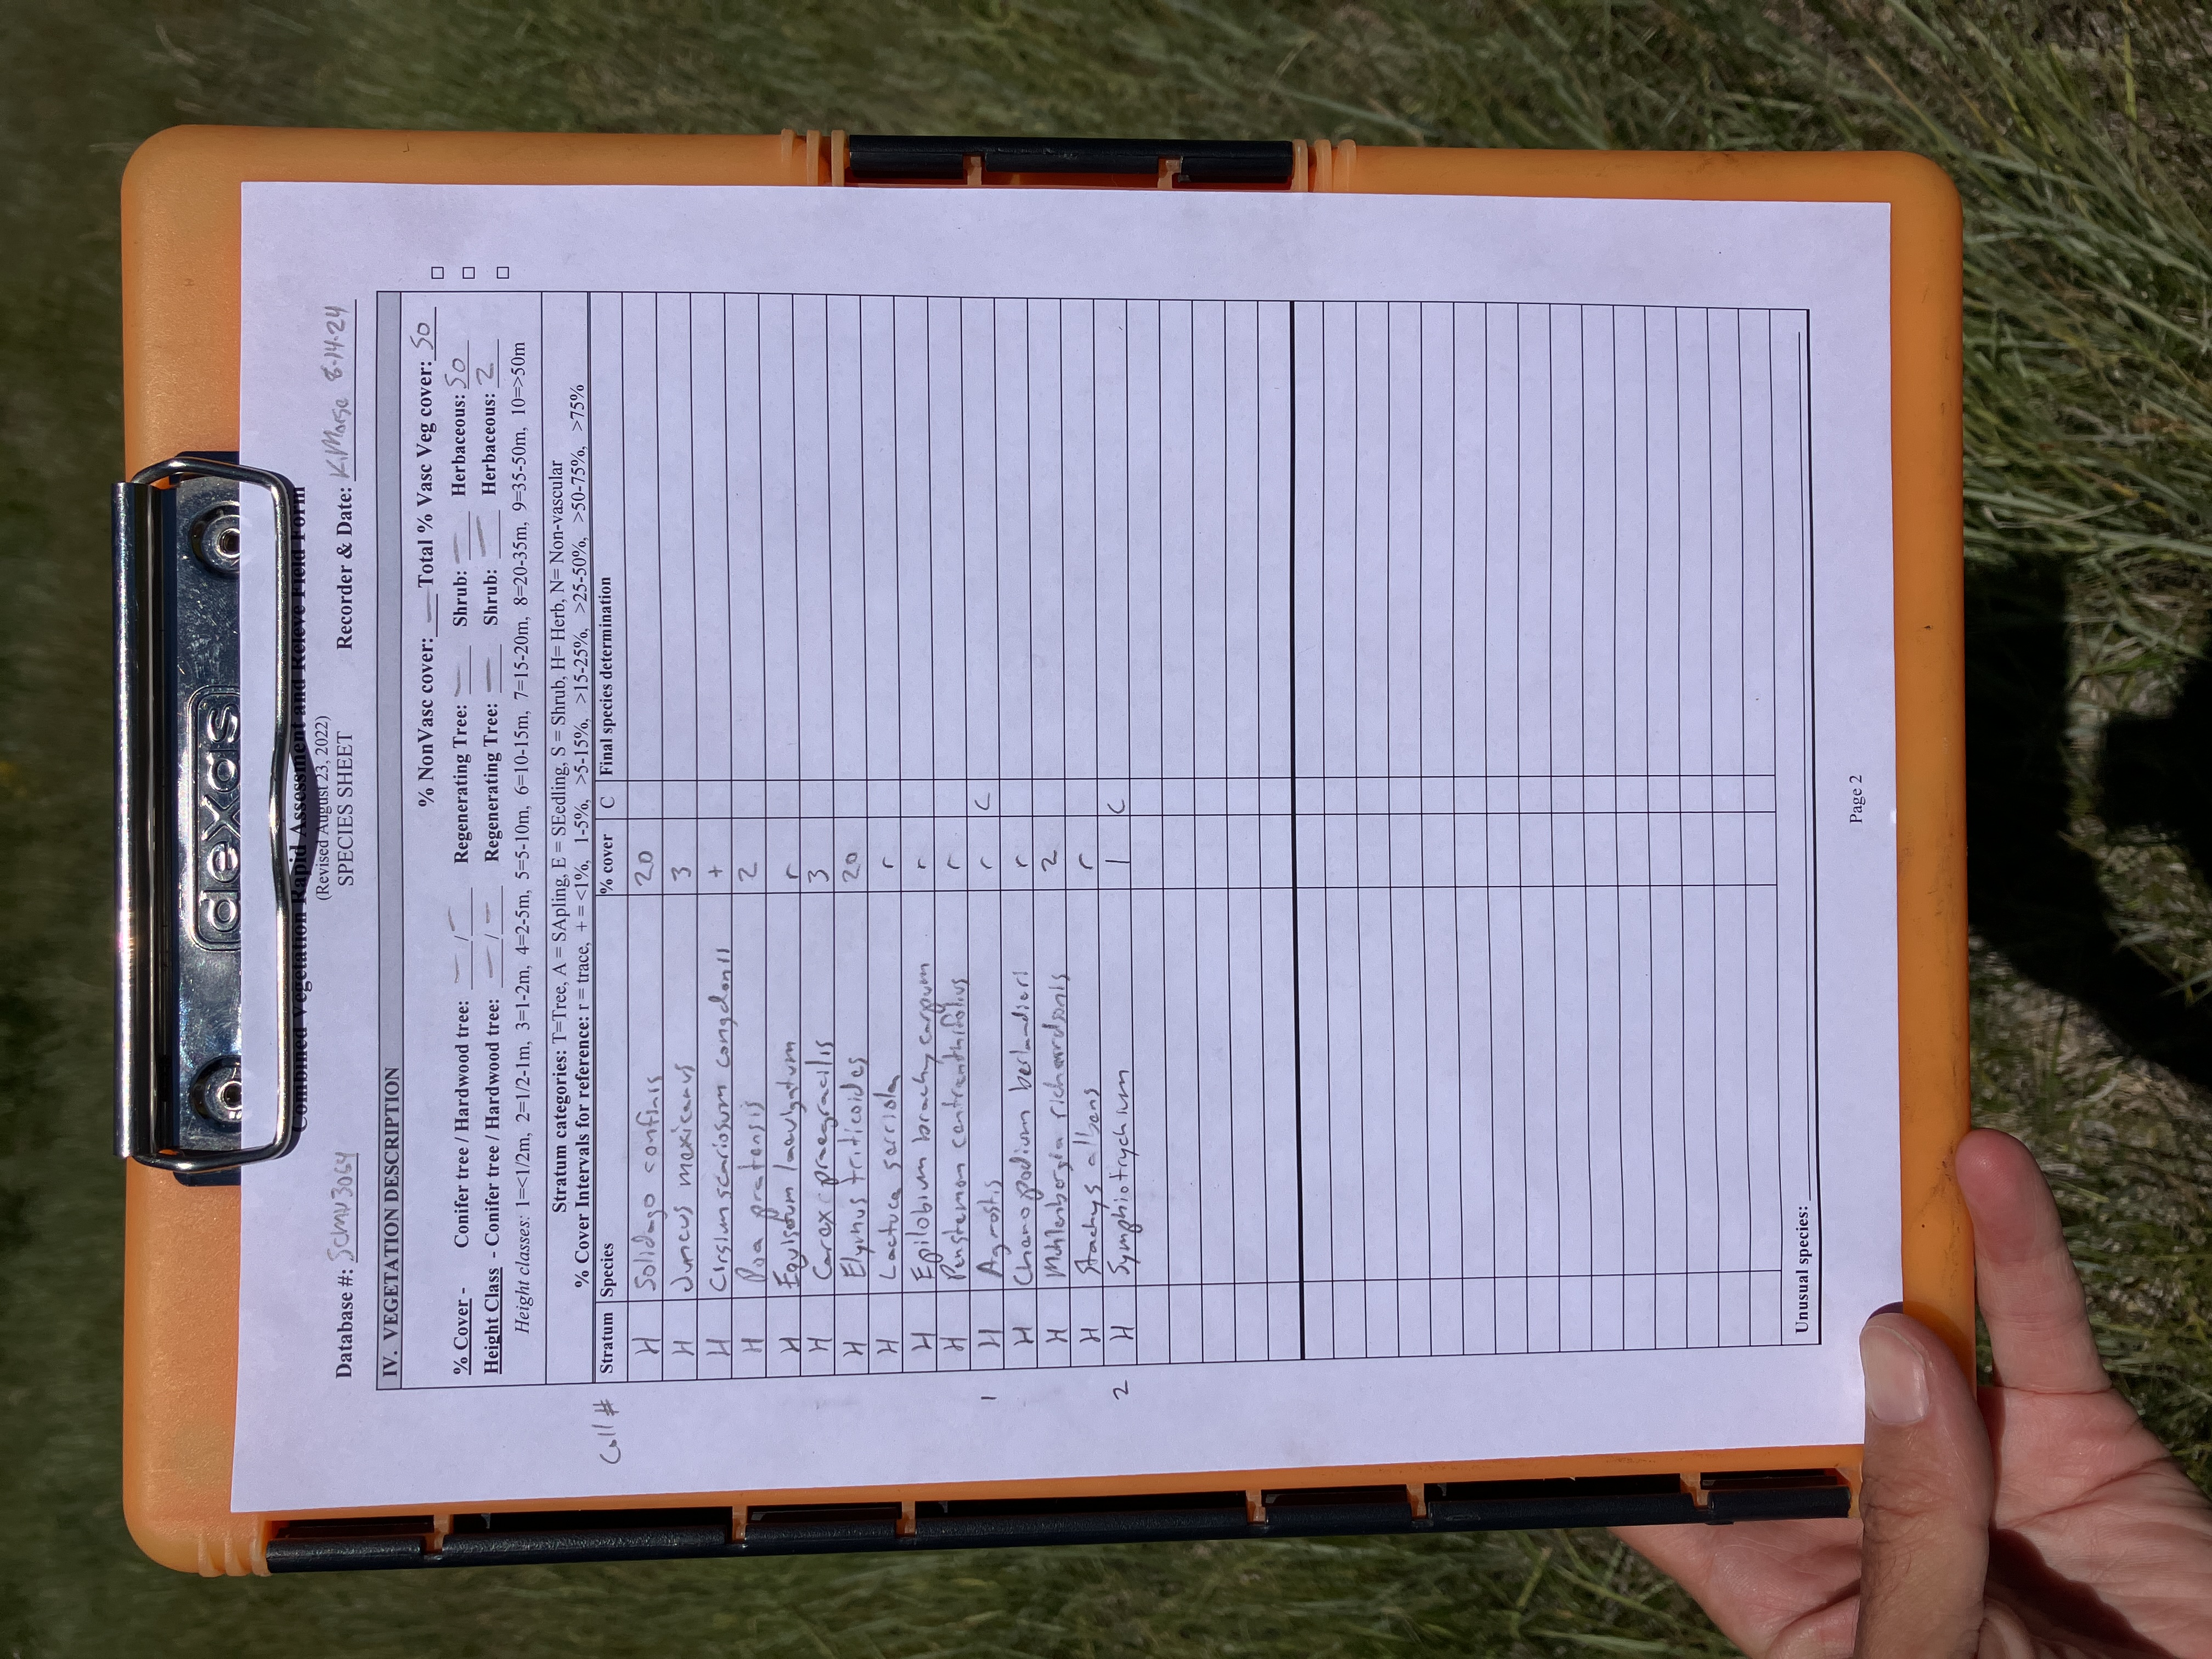 dexas
Combined Vegetation Rapid Assessment and Relevé Field Form
(Revised August 23, 2022)
SPECIES SHEET
Database #: SCMV3064 Recorder & Date: K. Morse 8-14-24
IV. VEGETATION DESCRIPTION
% NonVasc cover: — Total % Vasc Veg cover: 50
% Cover - Conifer tree / Hardwood tree: — / — Regenerating Tree: — Shrub: — Herbaceous: 50
Height Class - Conifer tree / Hardwood tree: — / — Regenerating Tree: — Shrub: — Herbaceous: 2
Height classes: 1=<1/2m, 2=1/2-1m, 3=1-2m, 4=2-5m, 5=5-10m, 6=10-15m, 7=15-20m, 8=20-35m, 9=35-50m, 10=>50m
Stratum categories: T=Tree, A = SApling, E = SEedling, S = Shrub, H= Herb, N= Non-vascular
% Cover Intervals for reference: r = trace, + = <1%, 1-5%, >5-15%, >15-25%, >25-50%, >50-75%, >75%
Coll # Stratum Species % cover C Final species determination
H Solidago confinis 20
H Juncus mexicanus 3
H Cirsium scariosum congdonii +
H Poa pratensis 2
H Equisetum laevigatum r
H Carex praegracilis 3
H Elymus triticoides 20
H Lactuca serriola r
H Epilobium brachycarpum r
H Penstemon centranthifolius r
1 H Agrostis r C
H Chenopodium berlandieri r
H Muhlenbergia richardsonis 2
H Stachys albens r
2 H Symphiotrychium 1 C
Unusual species:
Page 2